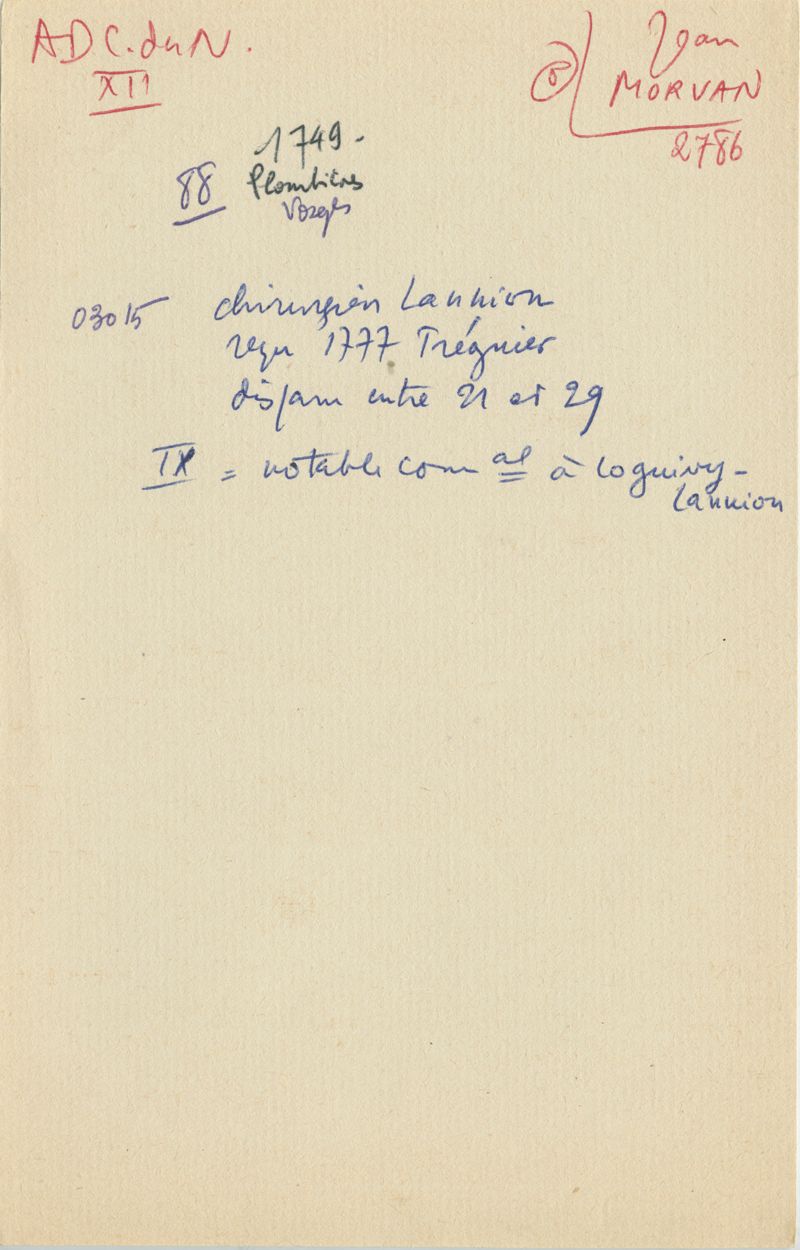 ADC.duN.
XII
Jean
MORVAN
2786
1749-
88 Plombières
Vosges
03015 chirurgien Lannion
reçu 1777 Tréguier
dispam entre 21 et 29
IX = notable com al à Loguivy-
Lannion